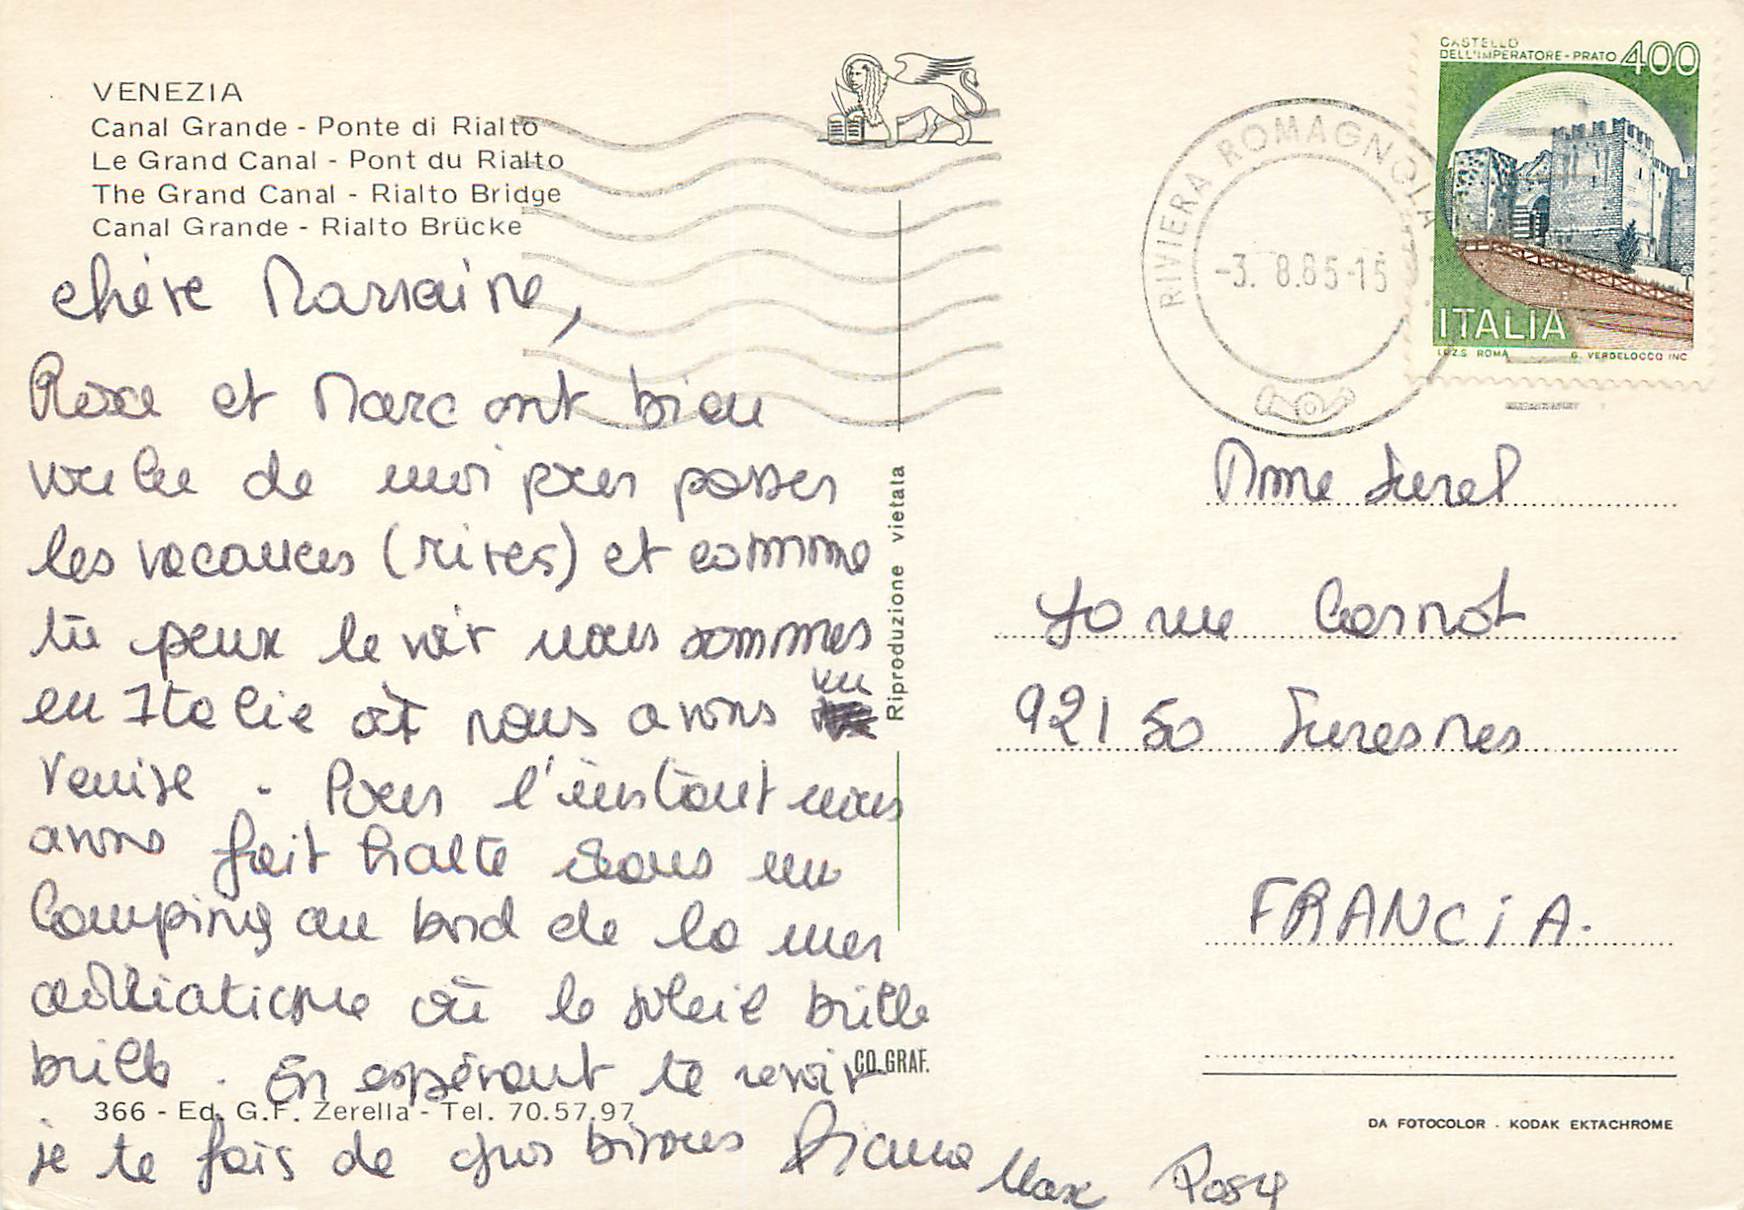 VENEZIA
Canal Grande - Ponte di Rialto
Le Grand Canal - Pont du Rialto
The Grand Canal - Rialto Bridge
Canal Grande - Rialto Brücke
chère Marraine,
et Marc ont bien
voulu de moi pour passer
les vacances (rires) et comme
tu peux le voir nous sommes
en Italie où nous avons vu
Venise. Pour l'instant nous
avons fait halte dans un
Camping au bord de la mer
adriatique où le soleil brille
brille. En espérant te revoir
je te fais de gros bisous
Max Rosy
366 - Ed. G.F. Zerella - Tel. 70.57.97
Riproduzione vietata
CO.GRAF.
RIVIERA ROMAGNOLA
-3. 8.85-15
CASTELLO
DELL'IMPERATORE - PRATO 400
ITALIA
I.P.Z.S. ROMA G. VERDELOCCO INC
Mme
rue Carnot
92150 Suresnes
FRANCIA.
DA FOTOCOLOR - KODAK EKTACHROME